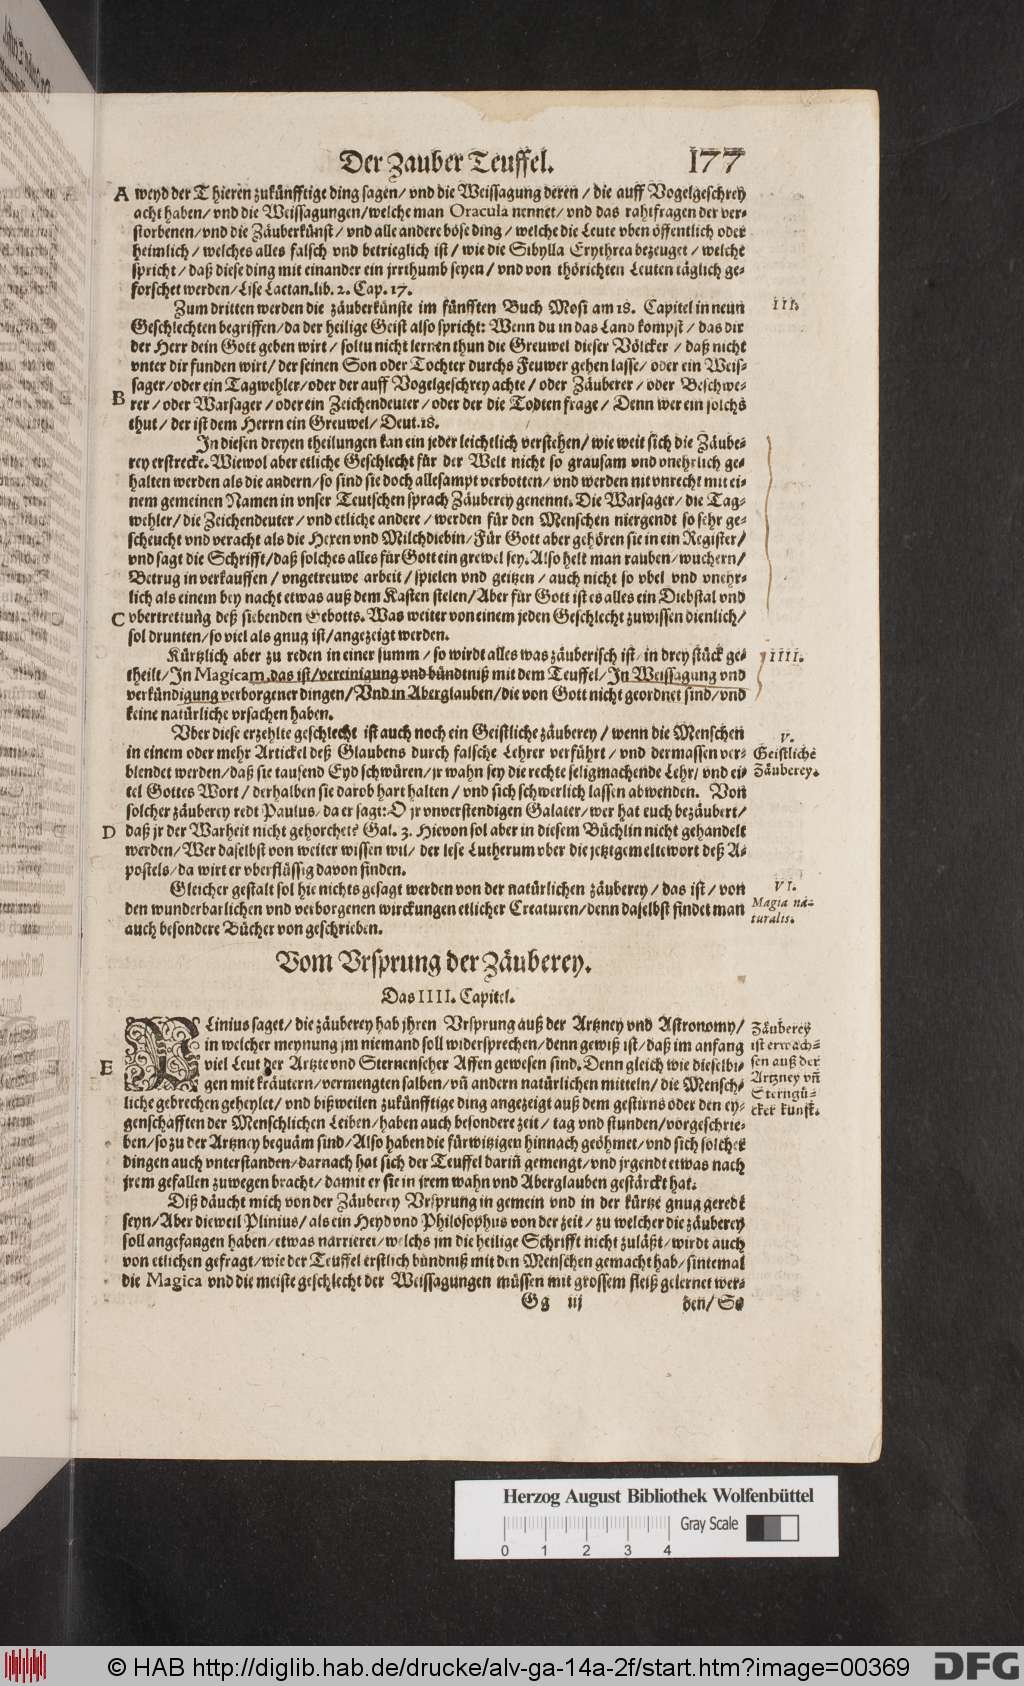 Der Zauber Teuffel. 177
A weyd der Thieren zukünfftige ding sagen / vnd die Weissagung deren / die auff Vogelgeschrey
acht haben / vnd die Weissagungen / welche man Oracula nennet / vnd das rahtfragen der ver-
storbenen / vnd die Zäuberkünst / vnd alle andere böse ding / welche die Leute vben öffentlich oder
heimlich / welches alles falsch vnd betrieglich ist / wie die Sibylla Erythrea bezeuget / welche
spricht / daß diese ding mit einander ein jrrthumb seyen / vnd von thörichten Leuten täglich ge-
forschet werden / Lise Lactan. lib. 2. Cap. 17.
Zum dritten werden die zäuberkünste im fünfften Buch Mosi am 18. Capitel in neun
III.
Geschlechten begriffen / da der heilige Geist also spricht: Wenn du in das Land kompst / das dir
der Herr dein Gott geben wirt / soltu nicht lernen thun die Greuwel dieser Völcker / daß nicht
vnter dir funden wirt / der seinen Son oder Tochter durchs Feuwer gehen lasse / oder ein Weis-
sager / oder ein Tagwehler / oder der auff Vogelgeschrey achte / oder Zäuberer / oder Beschwe-
B rer / oder Warsager / oder ein Zeichendeuter / oder der die Todten frage / Denn wer ein solchs
thut / der ist dem Herrn ein Greuwel / Deut. 18.
In diesen dreyen theilungen kan ein jeder leichtlich verstehen / wie weit sich die Zäube-
rey erstrecke. Wiewol aber etliche Geschlecht für der Welt nicht so grausam vnd vnehrlich ge-
halten werden als die andern / so sind sie doch allesampt verbotten / vnd werden nit vnrecht mit ei-
nem gemeinen Namen in vnser Teutschen sprach Zäuberey genennt. Die Warsager / die Tag-
wehler / die Zeichendeuter / vnd etliche andere / werden für den Menschen niergendt so sehr ge-
scheucht vnd veracht als die Hexen vnd Milchdiebin / Für Gott aber gehören sie in ein Register /
vnd sagt die Schrifft / daß solches alles für Gott ein grewel sey. Also helt man rauben / wuchern /
Betrug in verkauffen / vngetreuwe arbeit / spielen vnd geitzen / auch nicht so vbel vnd vnehr-
lich als einem bey nacht etwas auß dem Kasten stelen / Aber für Gott ist es alles ein Diebstal vnd
C vbertrettung deß siebenden Gebotts. Was weiter von einem jeden Geschlecht zuwissen dienlich /
sol drunten / so viel als gnug ist / angezeigt werden.
Kürtzlich aber zu reden in einer summ / so wirdt alles was zäuberisch ist / in drey stück ge-
IIII.
theilt / In Magicam, das ist / vereinigung vnd bündtniß mit dem Teuffel / In Weissagung vnd
verkündigung verborgener dingen / Vnd in Aberglauben / die von Gott nicht geordnet sind / vnd
keine natürliche vrsachen haben.
Vber diese erzehlte geschlecht ist auch noch ein Geistliche zäuberey / wenn die Menschen
V.
Geistliche
Zäuberey.
in einem oder mehr Artickel deß Glaubens durch falsche Lehrer verführt / vnd dermassen ver-
blendet werden / daß sie tausend Eyd schwüren / jr wahn sey die rechte seligmachende Lehr / vnd ei-
tel Gottes Wort / derhalben sie darob hart halten / vnd sich schwerlich lassen abwenden. Von
solcher zäuberey redt Paulus / da er sagt: O jr vnverstendigen Galater / wer hat euch bezäubert /
D daß jr der Warheit nicht gehorchete Gal. 3. Hievon sol aber in diesem Büchlin nicht gehandelt
werden / Wer daselbst von weiter wissen wil / der lese Lutherum vber die jetztgemelte wort deß A-
postels / da wirt er vberflüssig davon finden.
Gleicher gestalt sol hie nichts gesagt werden von der natürlichen zäuberey / das ist / von
VI.
Magia na-
turalis.
den wunderbarlichen vnd verborgenen wirckungen etlicher Creaturen / denn daselbst findet man
auch besondere Bücher von geschrieben.
Vom Vrsprung der Zäuberey.
Das IIII. Capitel.
PLinius saget / die zäuberey hab jhren Vrsprung auß der Artzney vnd Astronomy /
Zäuberey
ist erwach-
sen auß der
Artzney vñ
Sterngü-
cker kunst.
in welcher meynung jm niemand soll widersprechen / denn gewiß ist / daß im anfang
E viel Leut der Artzte vnd Sternenseher Affen gewesen sind. Denn gleich wie dieselbi-
gen mit kräutern / vermengten salben / vñ andern natürlichen mitteln / die Mensch-
liche gebrechen geheylet / vnd bißweilen zukünfftige ding angezeigt auß dem gestirns oder den ey-
genschafften der Menschlichen Leiben / haben auch besondere zeit / tag vnd stunden / vorgeschrie-
ben / so zu der Artzney bequäm sind / Also haben die fürwitzigen hinnach geöhmet / vnd sich solcher
dingen auch vnterstanden / darnach hat sich der Teuffel dariñ gemengt / vnd jrgendt etwas nach
jrem gefallen zuwegen bracht / damit er sie in jrem wahn vnd Aberglauben gestärckt hat.
Diß däucht mich von der Zäuberey Vrsprung in gemein vnd in der kürtze gnug geredt
seyn / Aber dieweil Plinius / als ein Heyd vnd Philosophus von der zeit / zu welcher die zäuberey
soll angefangen haben / etwas narrieret / welchs jm die heilige Schrifft nicht zuläßt / wirdt auch
von etlichen gefragt / wie der Teuffel erstlich bündniß mit den Menschen gemacht hab / sintemal
die Magica vnd die meiste geschlecht der Weissagungen müssen mit grossem fleiß gelernet wer-
Gg iij den / So
Herzog August Bibliothek Wolfenbüttel
Gray Scale
0 1 2 3 4
© HAB http://diglib.hab.de/drucke/alv-ga-14a-2f/start.htm?image=00369
DFG